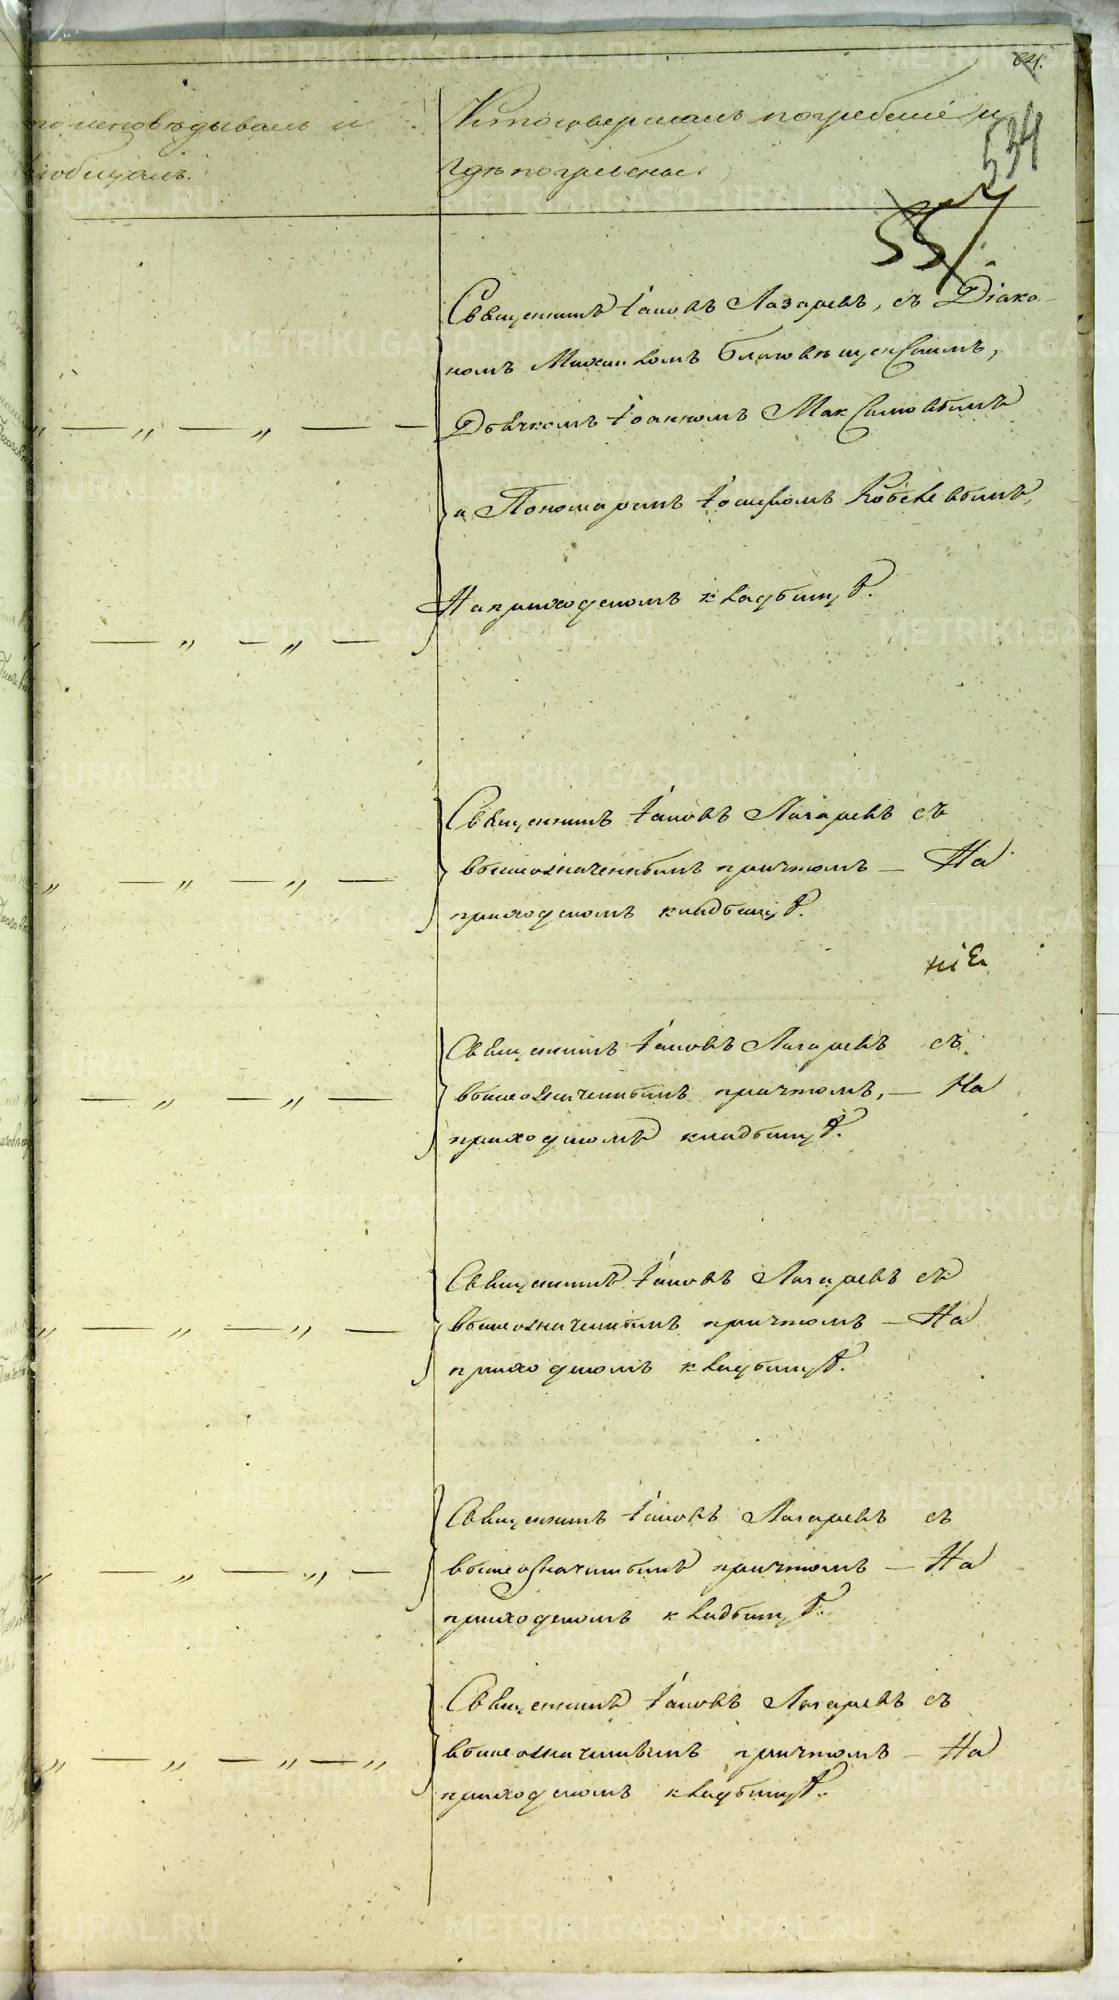 64.
534
557
кто исповѣдывалъ и
приобщалъ.
Кто совершалъ погребенiе и
гдѣ погребены.
Священникъ Iаковъ Лазаревъ, съ Дiако-
номъ Михаиломъ Благовѣщенскимъ,
Дьячкомъ Iоанномъ Максимовымъ
и Пономаремъ Iосифомъ
На приходскомъ кладбищѣ.
Священникъ Iаковъ Лазаревъ съ
вышеозначеннымъ причтомъ — На
приходскомъ кладбищѣ.
нiе
Священникъ Iаковъ Лазаревъ съ
вышеозначеннымъ причтомъ, — На
приходскомъ кладбищѣ.
Священникъ Iаковъ Лазаревъ съ
вышеозначеннымъ причтомъ — На
приходскомъ кладбищѣ.
Священникъ Iаковъ Лазаревъ съ
вышеозначеннымъ причтомъ — На
приходскомъ кладбищѣ.
Священникъ Iаковъ Лазаревъ съ
вышеозначеннымъ причтомъ — На
приходскомъ кладбищѣ.
METRIKI.GASO-URAL.RU